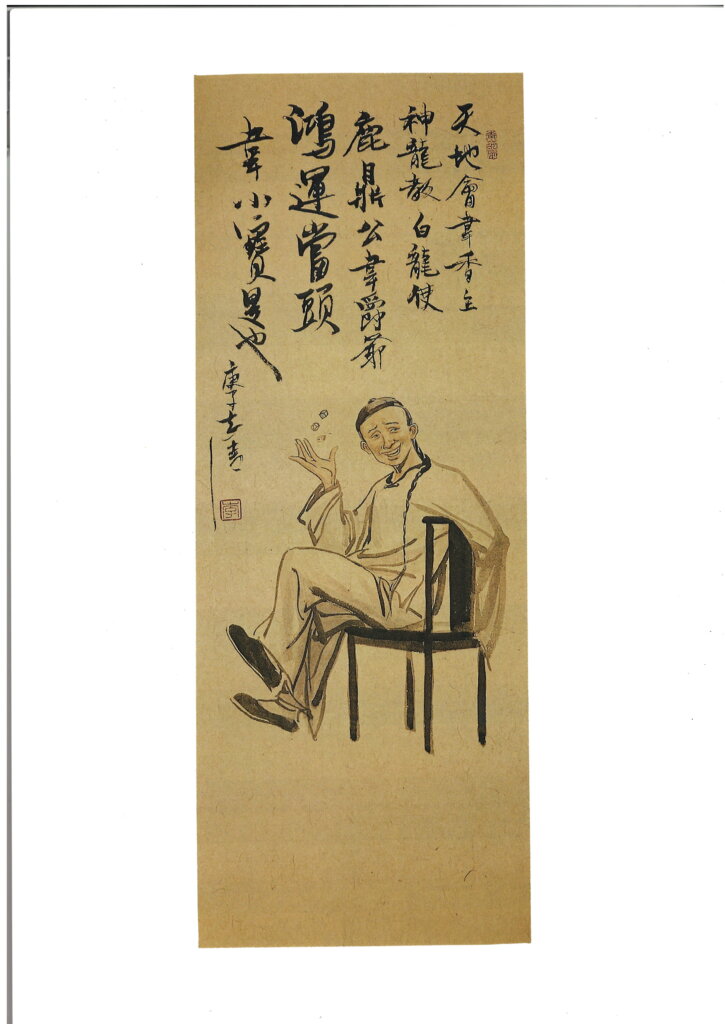 天地會韋香主
神龍教白龍使
鹿鼎公韋爵爺
鴻運當頭
韋小寶是也
庚子志清
李